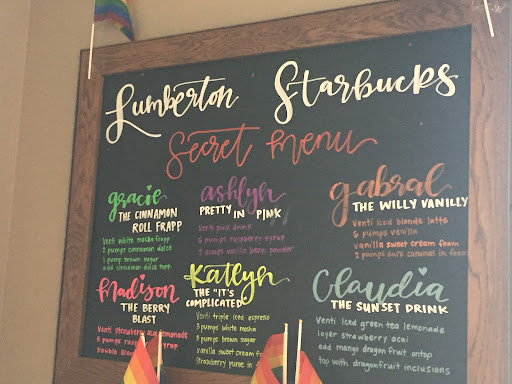 Lumberton Starbucks
Secret Menu
gracie
THE CINNAMON
ROLL FRAPP
Venti white mocha frapp
2 pumps cinnamon dolce
1 pump brown sugar
add cinnamon dolce topp
ashlyn
PRETTY IN PINK
Venti pink drink
6 pumps raspberry syrup
vanilla bean powder
gabral
THE WILLY VANILLY
Venti iced blonde latte
6 pumps vanilla
vanilla sweet cream foam
2 pumps dark caramel in foam
Madison
THE BERRY
BLAST
Venti strawberry acai lemonade
pumps raspberry syrup
Double Blen
Katelyn
THE "IT'S
COMPLICATED"
Venti triple iced espresso
3 pumps white mocha
3 pumps brown sugar
vanilla sweet cream
Strawberry puree in
Claudia
THE SUNSET DRINK
Venti iced green tea lemonade
layer strawberry acai
add mango dragon fruit on top
top with dragonfruit inclusions